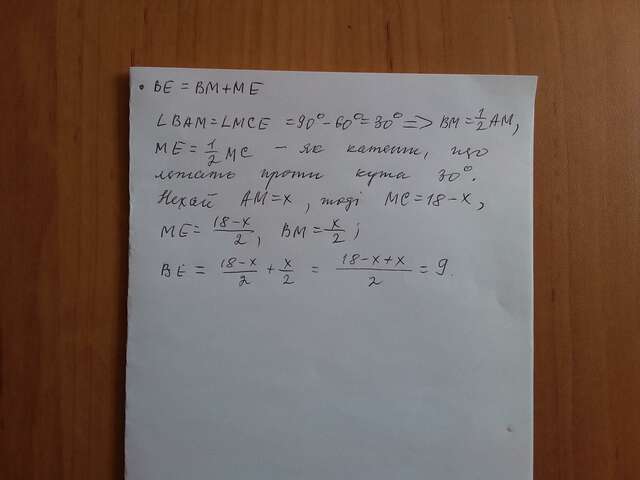 • BE = BM + ME
∠BAM = ∠MCE = 90° - 60° = 30° => BM = 1/2 AM,
ME = 1/2 MC - як катети, що
лежать проти кута 30°.
Нехай AM = x, тоді MC = 18 - x,
ME = (18-x)/2, BM = x/2;
BE = (18-x)/2 + x/2 = (18-x+x)/2 = 9.